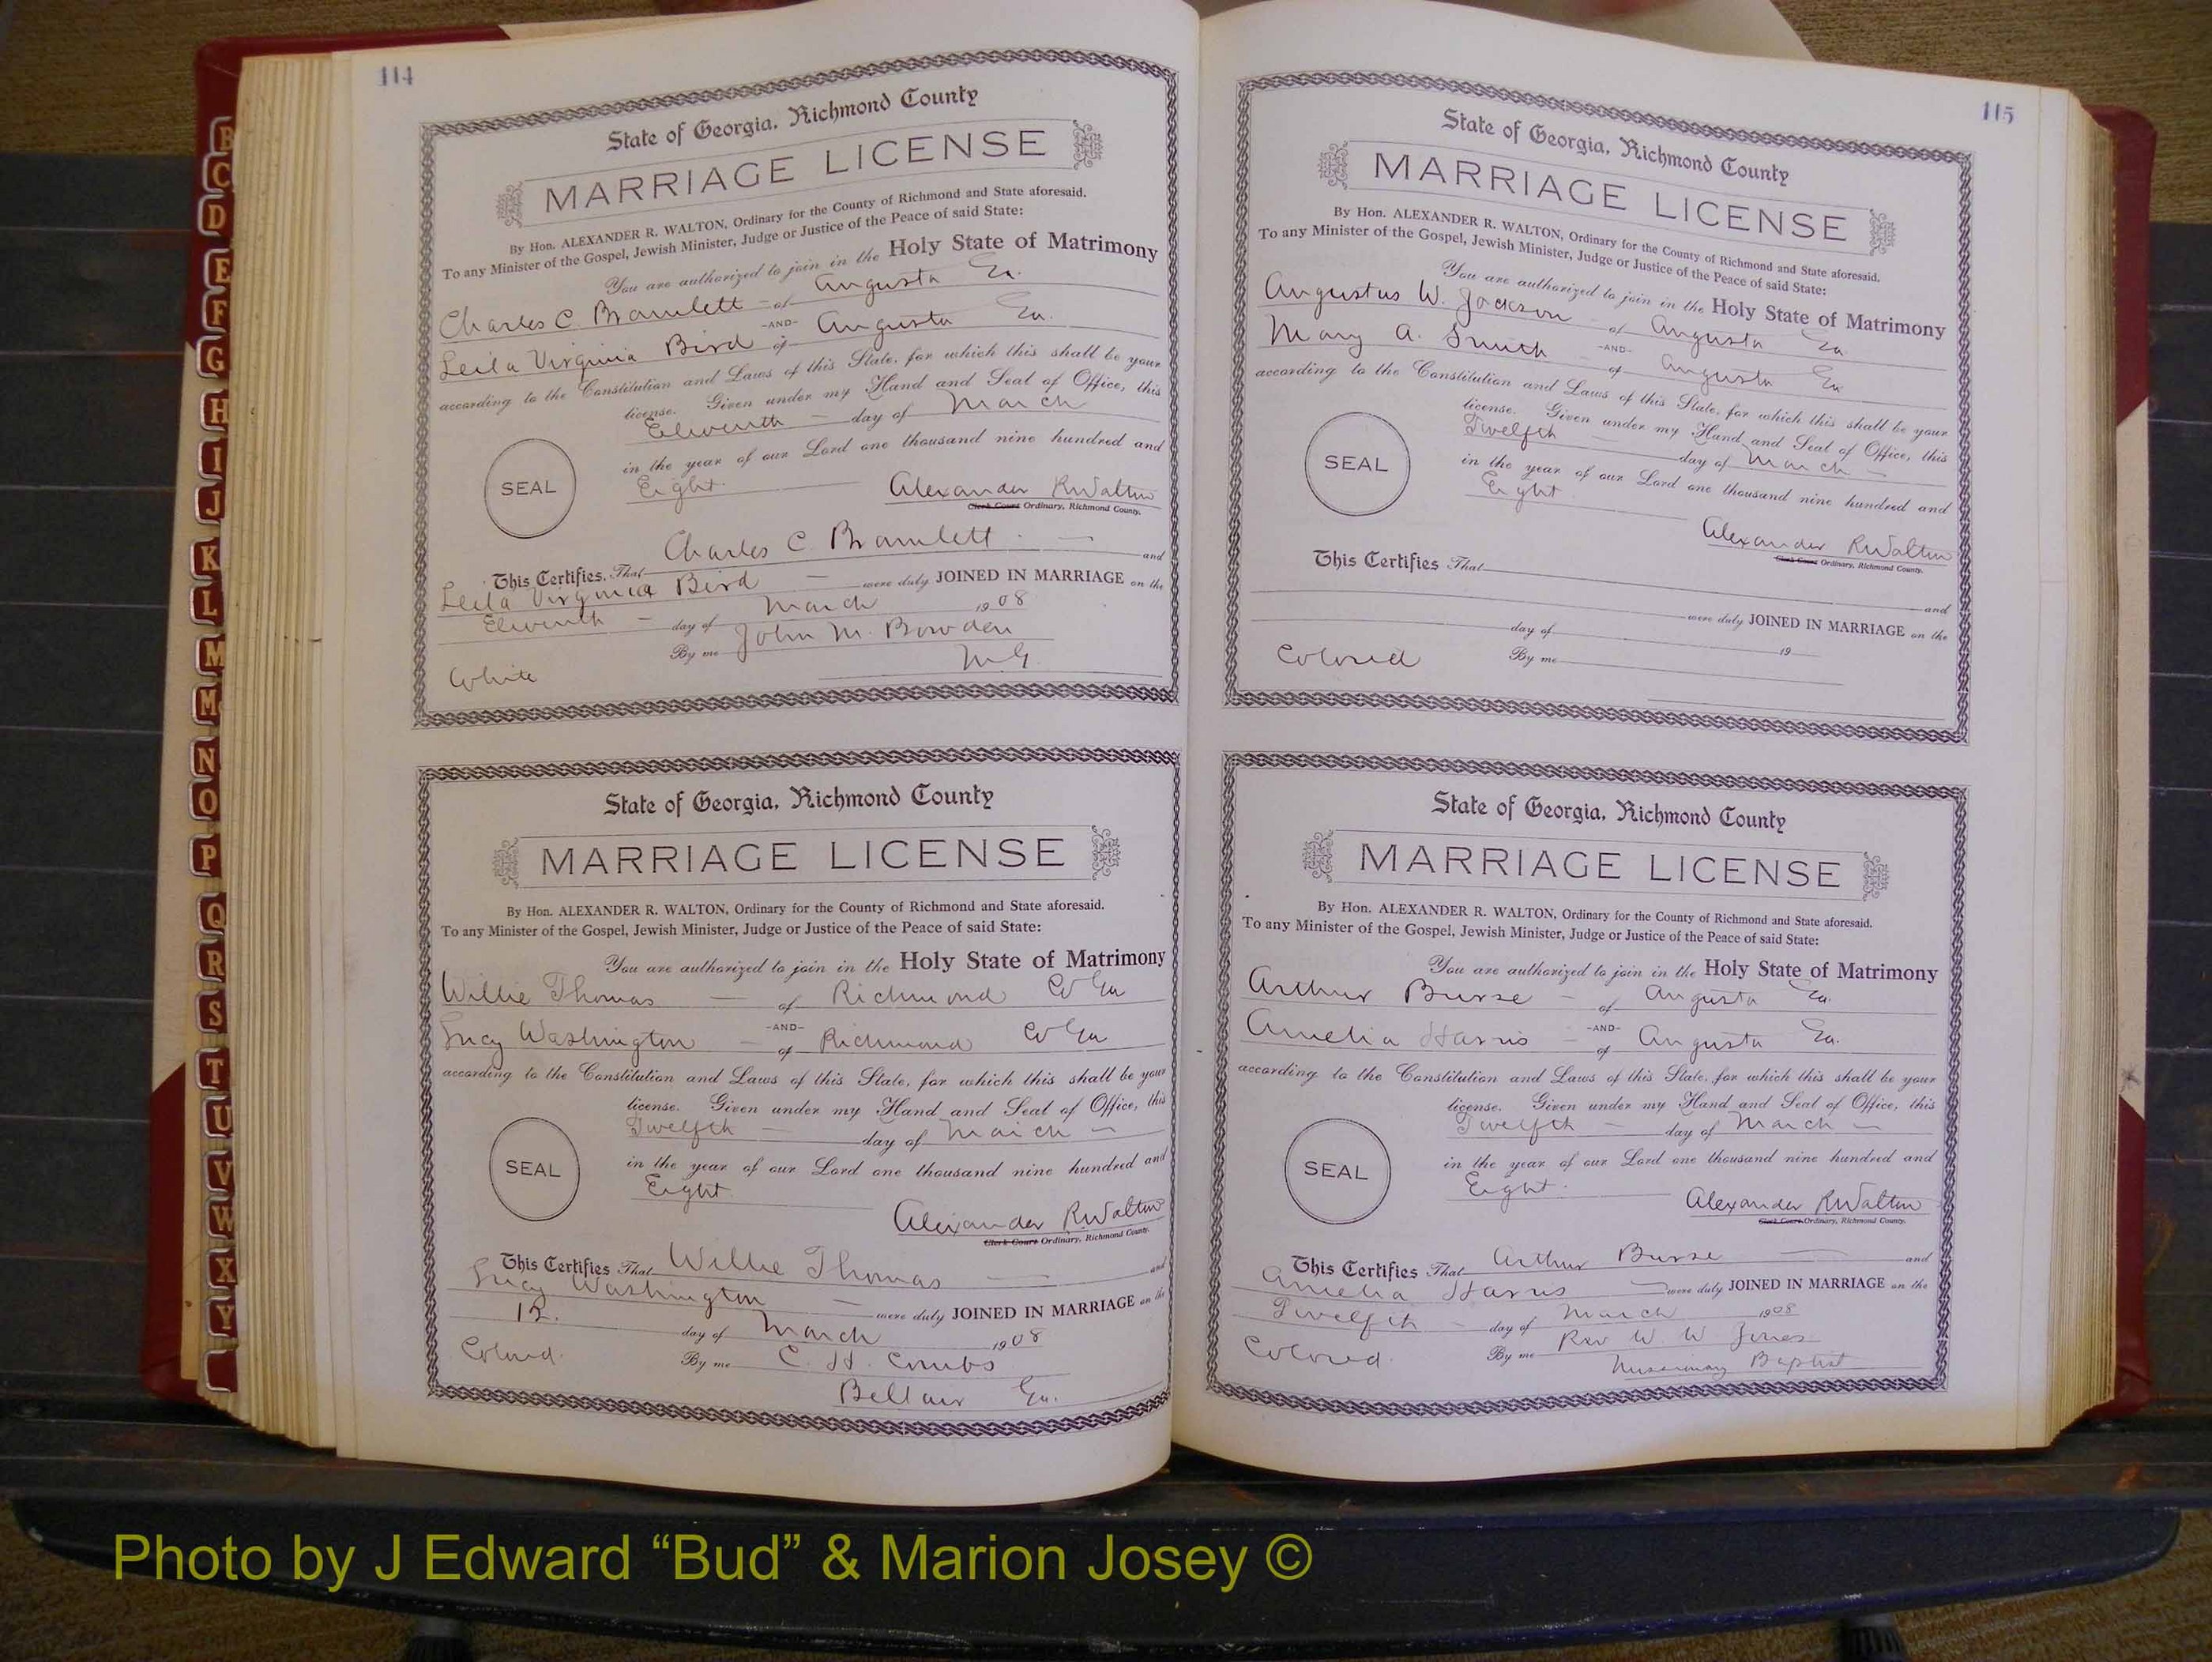 114
State of Georgia, Richmond County
MARRIAGE LICENSE
By Hon. ALEXANDER R. WALTON, Ordinary for the County of Richmond and State aforesaid.
To any Minister of the Gospel, Jewish Minister, Judge or Justice of the Peace of said State:
You are authorized to join in the Holy State of Matrimony
Charles C. Bramlett - of Augusta Ga.
-AND-
Leila Virginia Bird of Augusta Ga.
according to the Constitution and Laws of this State, for which this shall be your
license. Given under my Hand and Seal of Office, this
Eleventh - day of March
in the year of our Lord one thousand nine hundred and
SEAL
Eight.
Alexander R Walton
Clerk Court Ordinary, Richmond County.
This Certifies, That Charles C. Bramlett - and
Leila Virginia Bird - were duly JOINED IN MARRIAGE on the
Eleventh - day of March 1908
By me John M. Bowden
White M.G.
State of Georgia, Richmond County
MARRIAGE LICENSE
By Hon. ALEXANDER R. WALTON, Ordinary for the County of Richmond and State aforesaid.
To any Minister of the Gospel, Jewish Minister, Judge or Justice of the Peace of said State:
You are authorized to join in the Holy State of Matrimony
Willie Thomas - of Richmond Co Ga
-AND-
Lucy Washington - of Richmond Co Ga
according to the Constitution and Laws of this State, for which this shall be your
license. Given under my Hand and Seal of Office, this
Twelfth - day of March -
in the year of our Lord one thousand nine hundred and
SEAL
Eight.
Alexander R. Walton
Clerk Court Ordinary, Richmond County.
This Certifies That Willie Thomas - and
Lucy Washington - were duly JOINED IN MARRIAGE on the
12. day of March 1908
Colored. By me C. H. Combs
Bellair Ga.
115
State of Georgia, Richmond County
MARRIAGE LICENSE
By Hon. ALEXANDER R. WALTON, Ordinary for the County of Richmond and State aforesaid.
To any Minister of the Gospel, Jewish Minister, Judge or Justice of the Peace of said State:
You are authorized to join in the Holy State of Matrimony
Augustus W. Jackson - of Augusta Ga
-AND-
Mary A. Smith of Augusta Ga
according to the Constitution and Laws of this State, for which this shall be your
license. Given under my Hand and Seal of Office, this
Twelfth - day of March -
in the year of our Lord one thousand nine hundred and
SEAL
Eight
Alexander R Walton
Clerk Court Ordinary, Richmond County.
This Certifies That and
were duly JOINED IN MARRIAGE on the
day of 19
Colored By me
State of Georgia, Richmond County
MARRIAGE LICENSE
By Hon. ALEXANDER R. WALTON, Ordinary for the County of Richmond and State aforesaid.
To any Minister of the Gospel, Jewish Minister, Judge or Justice of the Peace of said State:
You are authorized to join in the Holy State of Matrimony
Arthur Burse - of Augusta Ga.
-AND-
Amelia Harris - of Augusta Ga.
according to the Constitution and Laws of this State, for which this shall be your
license. Given under my Hand and Seal of Office, this
Twelfth - day of March -
in the year of our Lord one thousand nine hundred and
SEAL
Eight.
Alexander R Walton
Clerk Court Ordinary, Richmond County.
This Certifies That Arthur Burse - and
Amelia Harris - were duly JOINED IN MARRIAGE on the
Twelfth - day of March 1908
Colored. By me Rev W W Jones
Missionary Baptist
B
C
D
E
F
G
H
I
J
K
L
M
M
N
O
P
Q
R
S
T
U
V
W
X
Y
Photo by J Edward “Bud” & Marion Josey ©